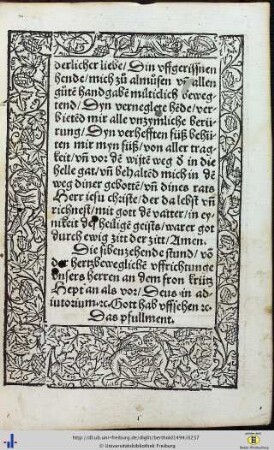 derlicher liebe/ Din vffgerissnen
hende/ mich zů almůsen vñ allen
gůtē handgabē milticlich beweg-
tend/ Dyn verneglete hēde/ ver-
bietēd mir alle vnzymliche berü-
rung/ Dyn verhefften fůß behü-
ten mir myn fůß/ von aller trag-
keit/ vñ vor dē wistē weg d in die
helle gat/ vñ behaltēd mich in dē
weg diner gebottē/ vñ dines rats
Herr iesu christe/ der da lebst vñ
richnest/ mit gott dē vatter/ in ey-
nikeit des heiligē geists/ warer got
durch ewig zitt der zitt/ Amen.
Die sibenzehende stund/ vō
der hertzbewegliche vffrichtunge
vnsers herren an dem fron krütz
Hept an als vor/ Deus in ad-
iutorium ⁊c. Gott hab vffsehen ⁊c
Das psullment.
http://dl.ub.uni-freiburg.de/diglit/berthold1494/0237
© Universitätsbibliothek Freiburg